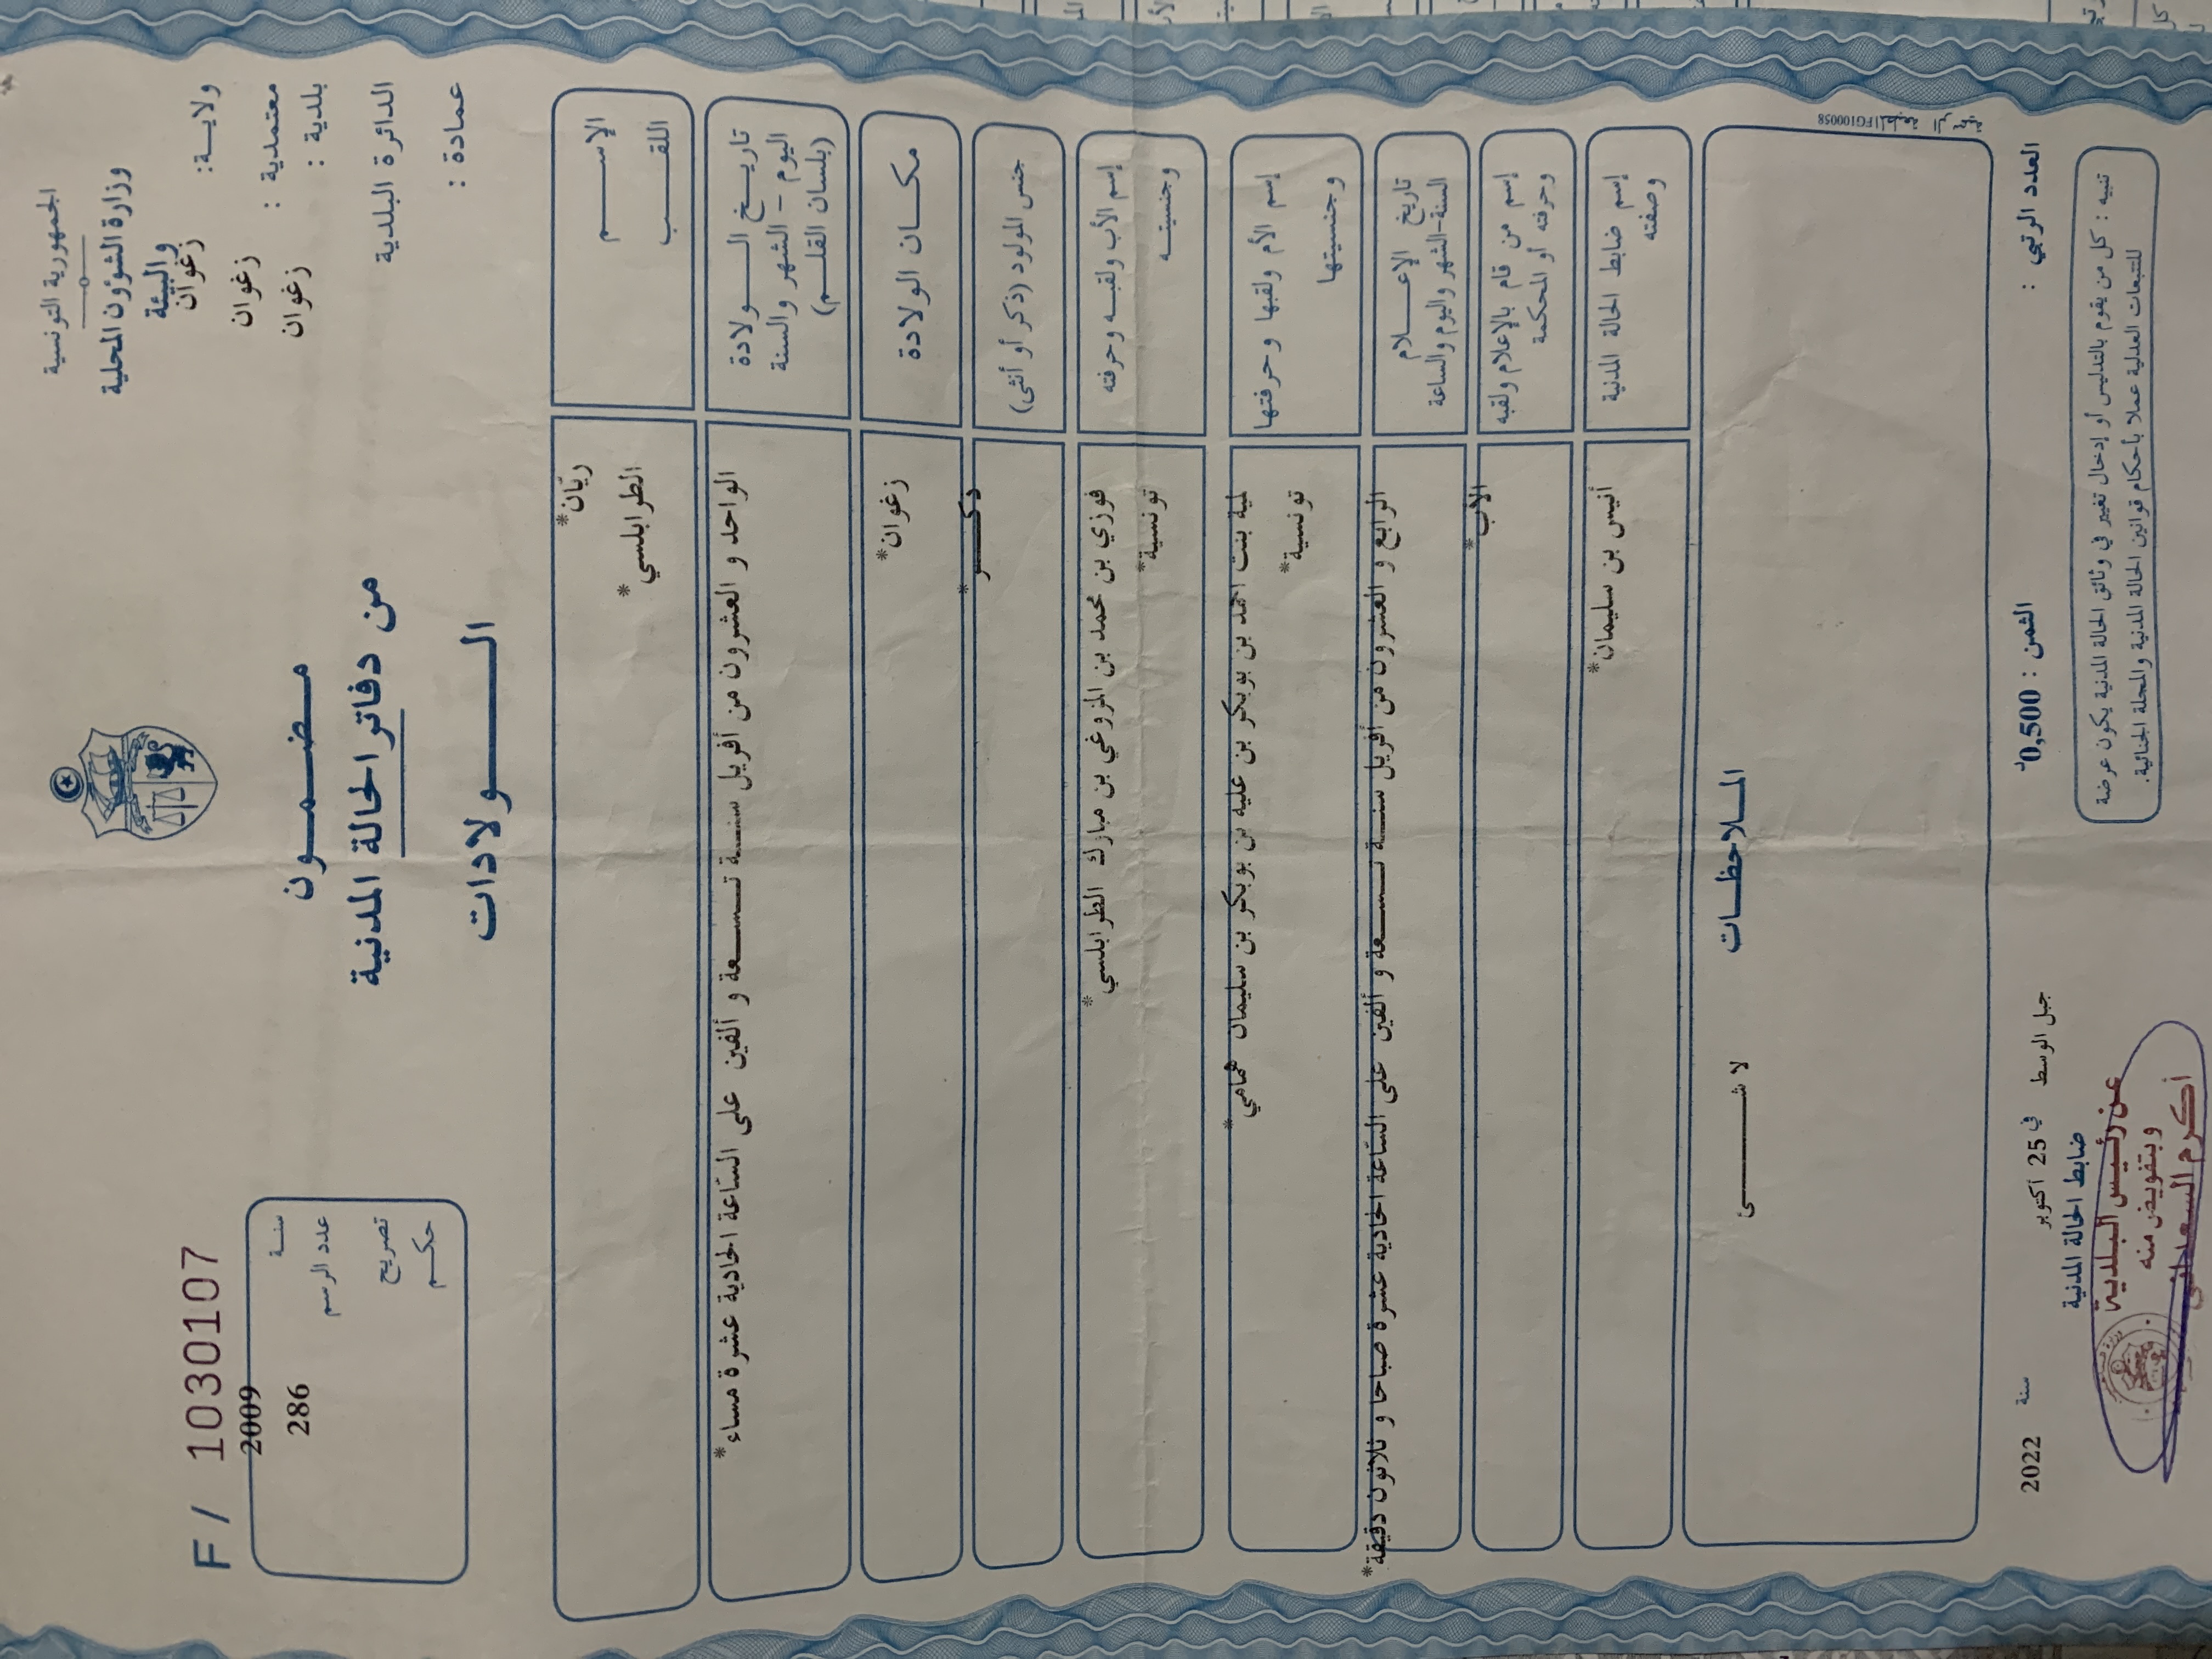 الجمهورية التونسية
وزارة الشؤون المحلية
والبيئة
ولايــة: زغوان
معتمدية : زغوان
بلدية : زغوان
الدائرة البلدية
عمادة :
مضمــون
من دفاتر الحالة المدنية
الــولادات
F / 1030107
سنــة 2009
عدد الرسم 286
تصريح
حكــم
الإســـم
ريّان*
اللقــب
الطرابلسي*
تاريــخ الــولادة
اليوم - الشهر والسنة
(بلسان القلــم)
الواحد و العشرون من أفريل سنــة تــسعة و ألفين على السّاعة الحادية عشرة مساء*
مكــان الولادة
زغوان*
جنس المولود (ذكر أو أنثى)
ذكــر*
إسم الأب ولقبــه وحرفته
فوزي بن محمد بن المزوغي بن مبارك الطرابلسي*
وجنسيتــه
تونسية*
إسم الأم ولقبها وحرفتها
لمية بنت احمد بن بوبكر بن عليه بن بوبكر بن سليمان همامي*
وجنسيتها
تونسية*
تاريخ الإعــلام
السنة-الشهر واليوم والساعة
الرابع و العشرون من أفريل سنــة تــسعة و ألفين على السّاعة الحادية عشرة صباحا و ثلاثون دقيقة*
إسم من قام بالإعلام ولقبه
وحرفته أو المحكمة
الأب*
إسم ضابط الحالة المدنية
وصفته
أنيس بن سليمان*
الملاحظــات
لا شــــئ
FG100058
العدد الرتبي :
الثمن : 0,500د
جبل الوسط في 25 أكتوبر سنة 2022
ضابط الحالة المدنية
تنبيه : كل من يقوم بالتدليس أو إدخال تغيير في وثائق الحالة المدنية يكون عرضة
للتتبعات العدلية عملا بأحكام قوانين الحالة المدنية والمجلة الجنائية.
عن رئيس البلدية
وبتفويض منه
أكرم السعداني